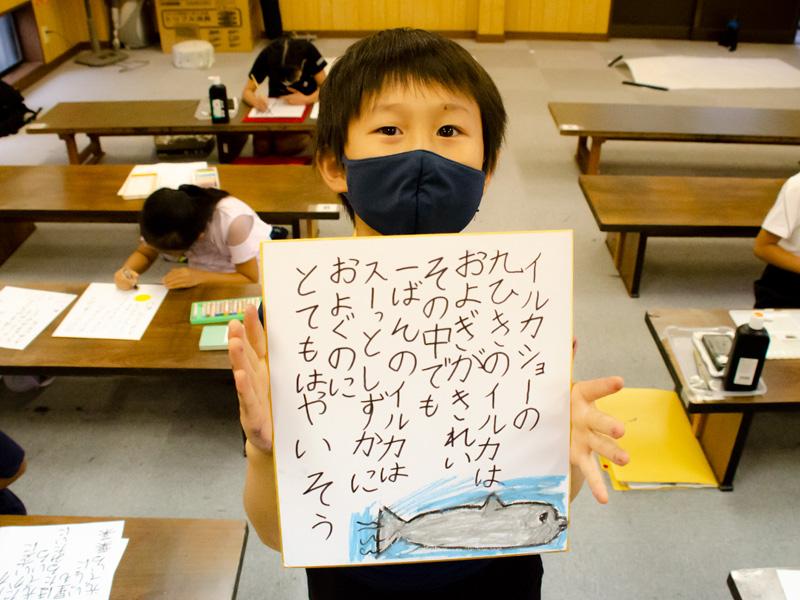 イルカショーの
九ひきのイルカは
およぎがきれい
その中でも
一ばんのイルカは
スーっとしずかに
およぐのに
とてもはやい そう